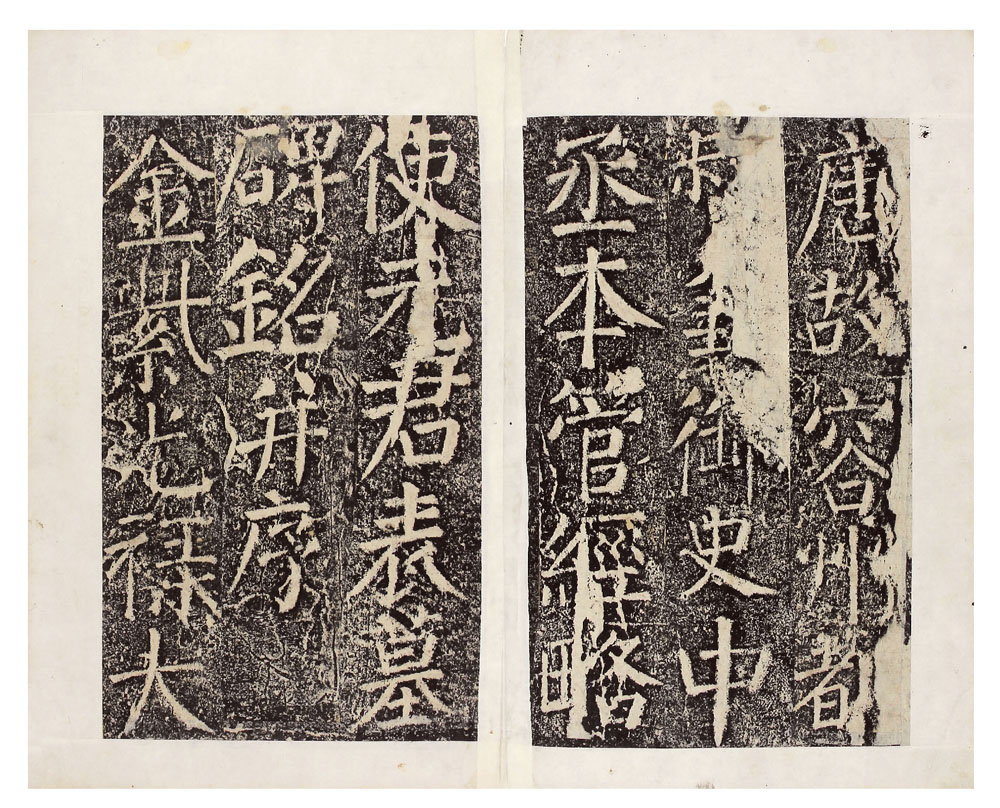 唐故容州都
御史中
丞本管經略
使元君表墓
碑銘并序
金紫光祿大